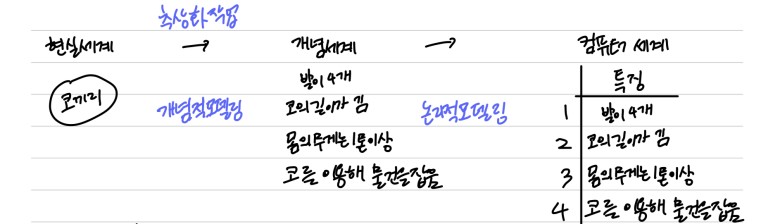 추상화작업
현실세계 → 개념세계 → 컴퓨터 세계
발이 4개 특징
코끼리 개념적모델링 코의길이가 김 논리적모델링 1 발이 4개
몸의무게는 1톤이상 2 코의길이가 김
코를 이용해 물건을잡음 3 몸의무게는 1톤이상
4 코를 이용해 물건을잡음